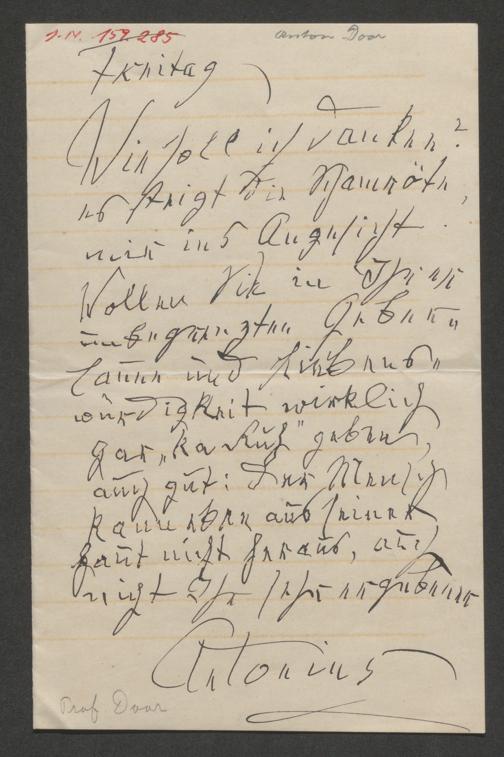 I.N. 159.285
Anton Door
Freitag
Wie soll ich danken?
es steigt die Schamröte,
mir ins Angesicht.
Wollen Sie in Ihrer
unbegrenzten Gebens-
laune und Liebens-
würdigkeit wirklich
gar „ka Ruh" geben,
auch gut: Der Mensch
kann eben aus seiner
Haut nicht heraus, auch
nicht Ihr sehr ergebener
Antonius
Prof Door